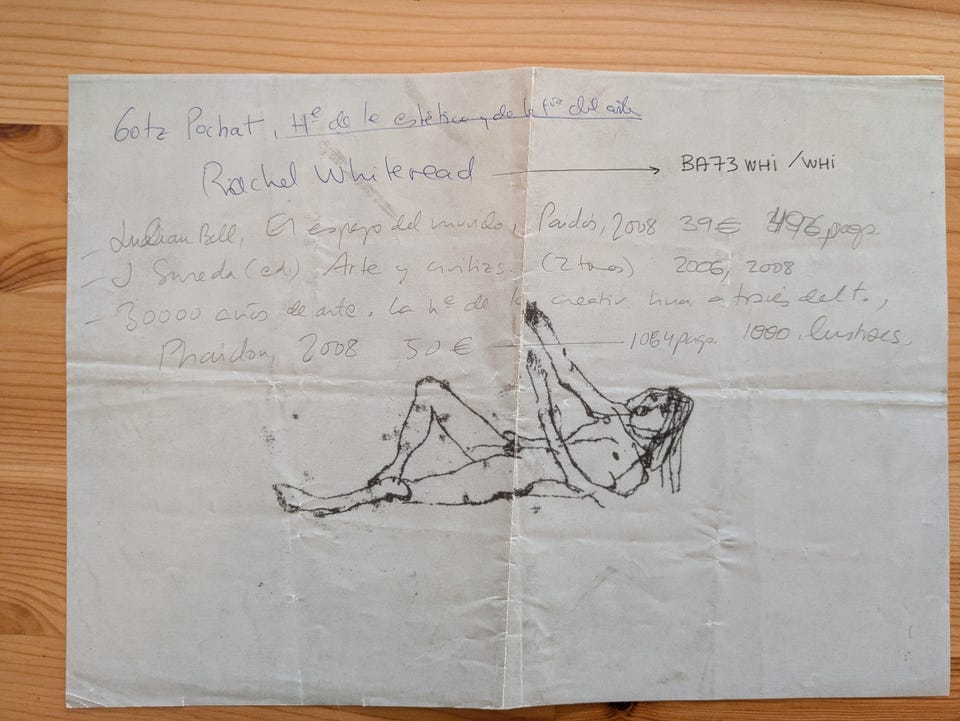 Gotz Pochat, Hª de la estética y de la tª del arte
Rachel Whiteread → BA73 WHI / WHI
- Julian Bell, El espejo del mundo, Paidós, 2008 39€ 496 pags.
- J Sureda (ed) Arte y civilizs. (2 tomos) 2006, 2008
- 30000 años de arte. La hª de la creativ. hum a través del t.,
Phaidon, 2008 50 € — 1064 pags. 1000 ilustracs.